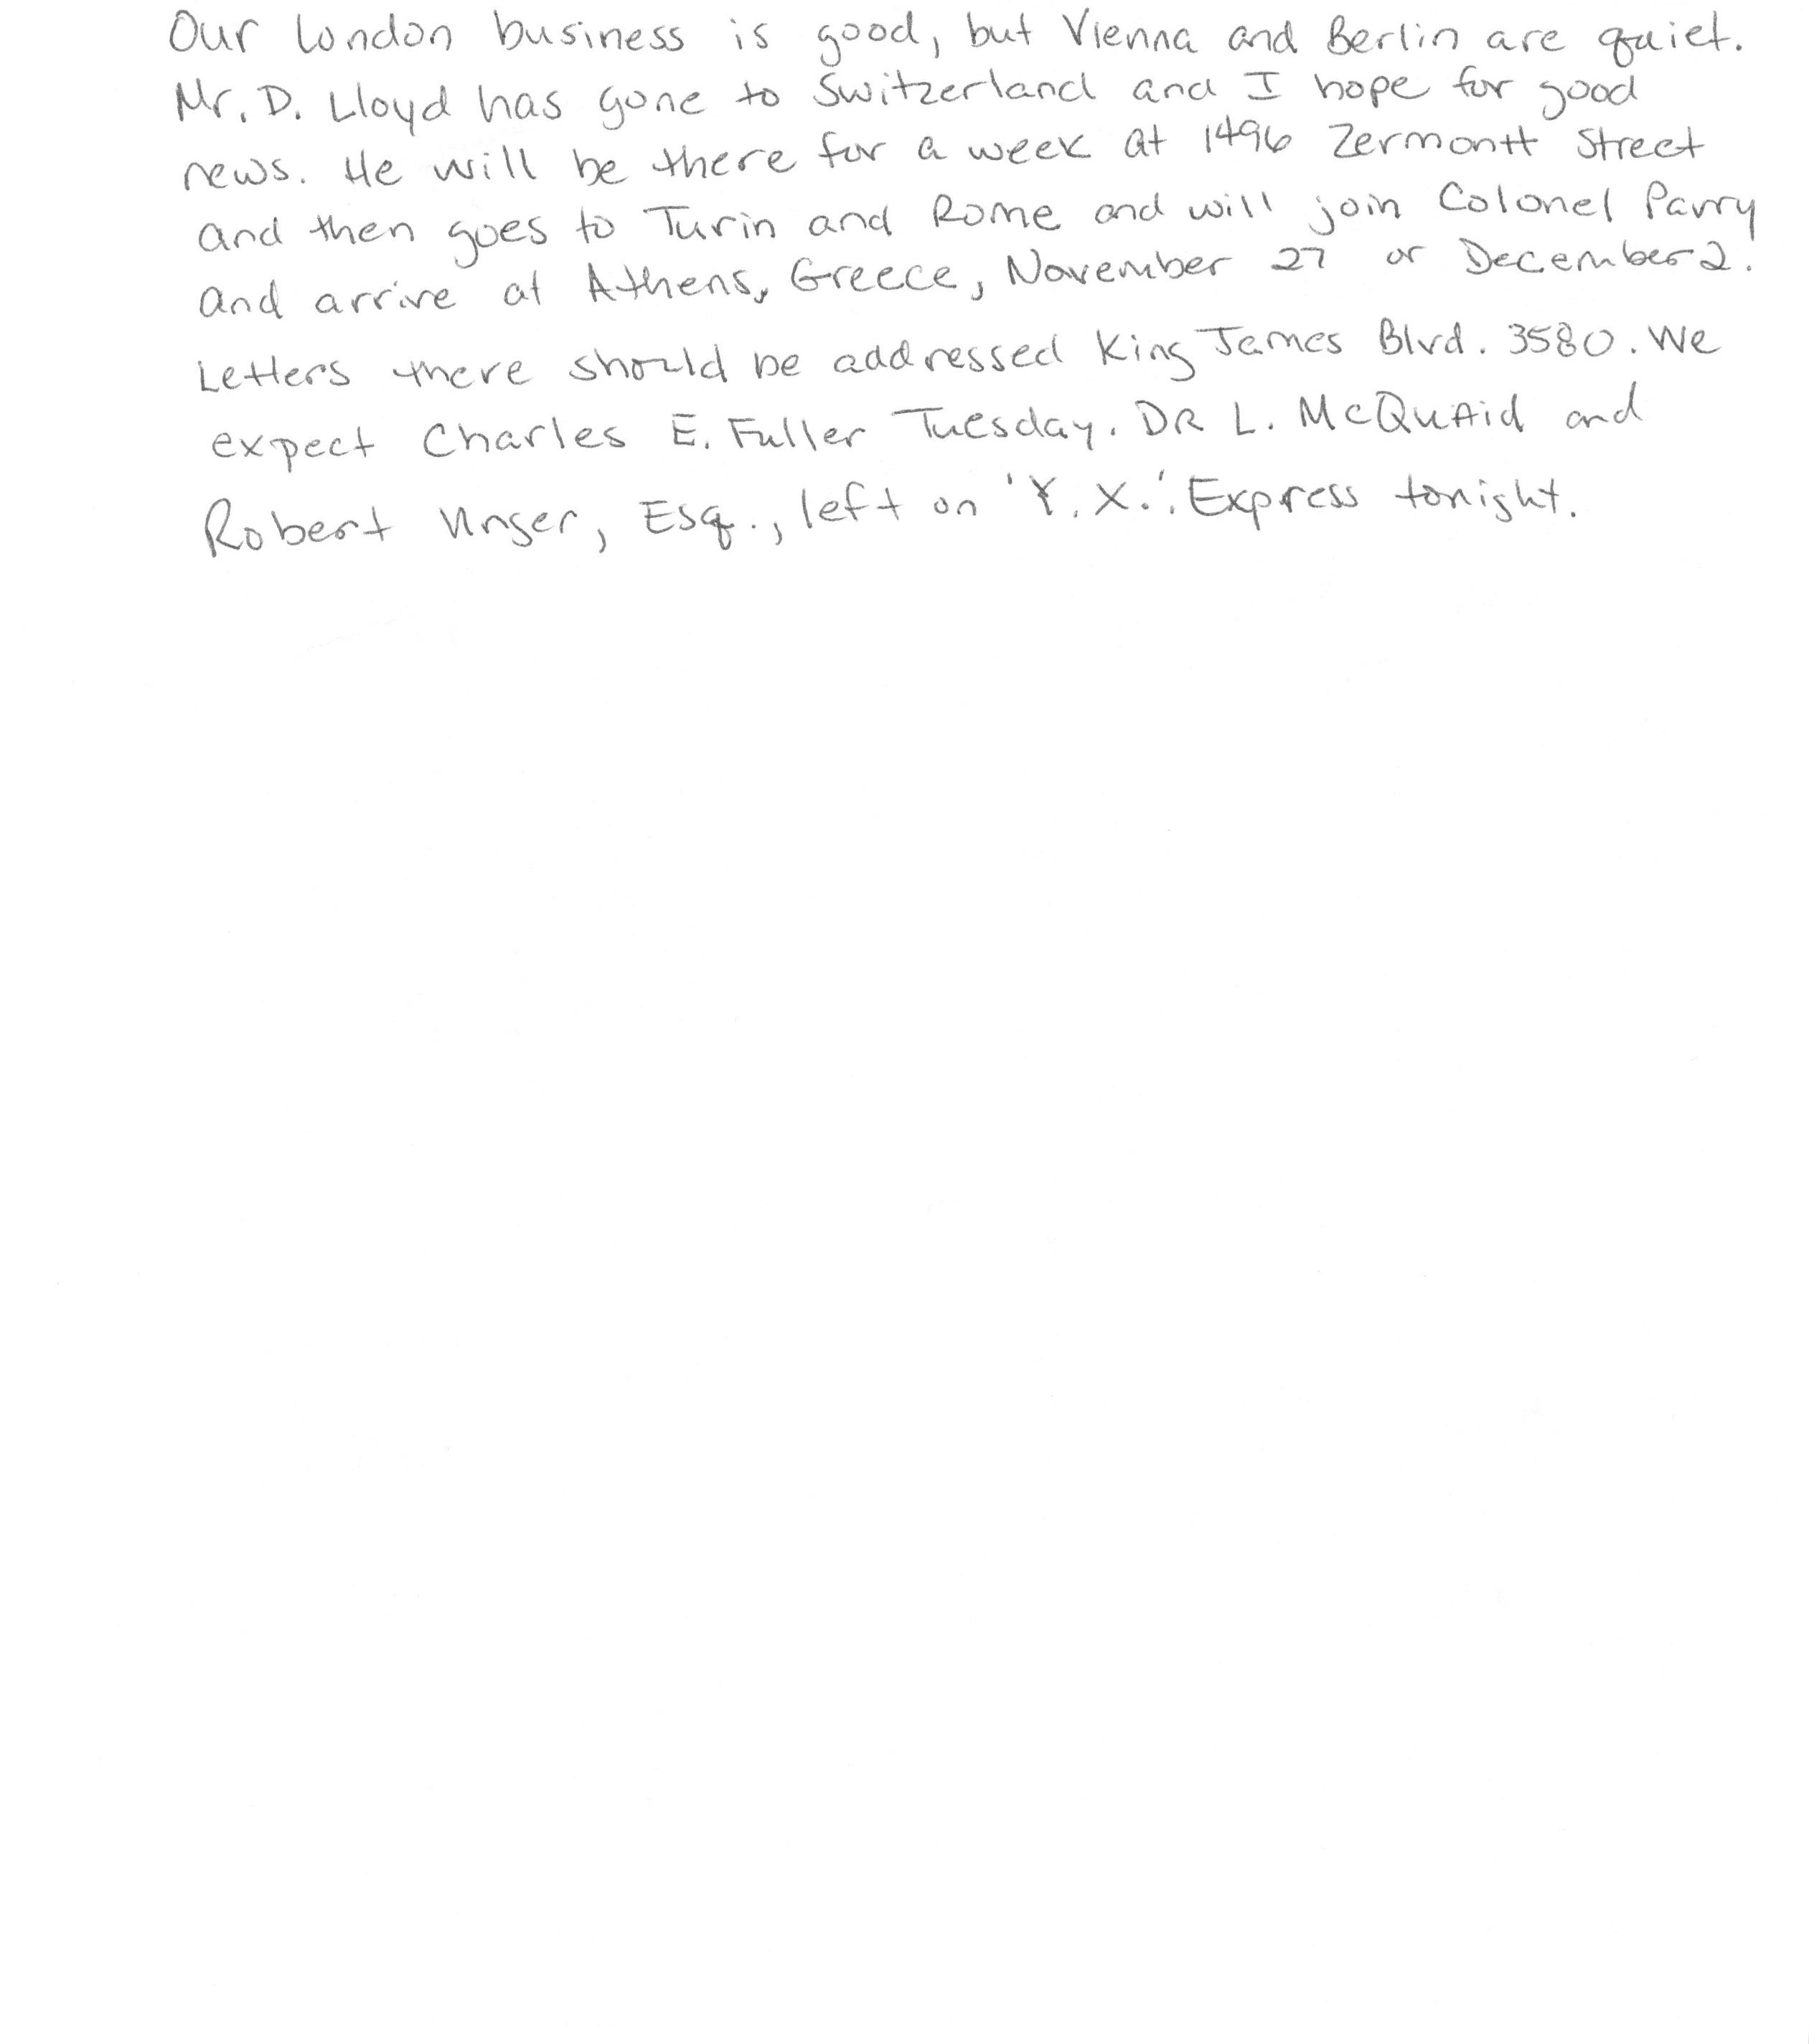 Our London business is good, but Vienna and Berlin are quiet.
Mr. D. Lloyd has gone to Switzerland and I hope for good
news. He will be there for a week at 1496 Zermontt Street
and then goes to Turin and Rome and will join Colonel Parry
and arrive at Athens, Greece, November 27 or December 2.
Letters there should be addressed King James Blvd. 3580. We
expect Charles E. Fuller Tuesday. DR L. McQuAid and
Robert Unger, Esq., left on 'Y. X.'. Express tonight.